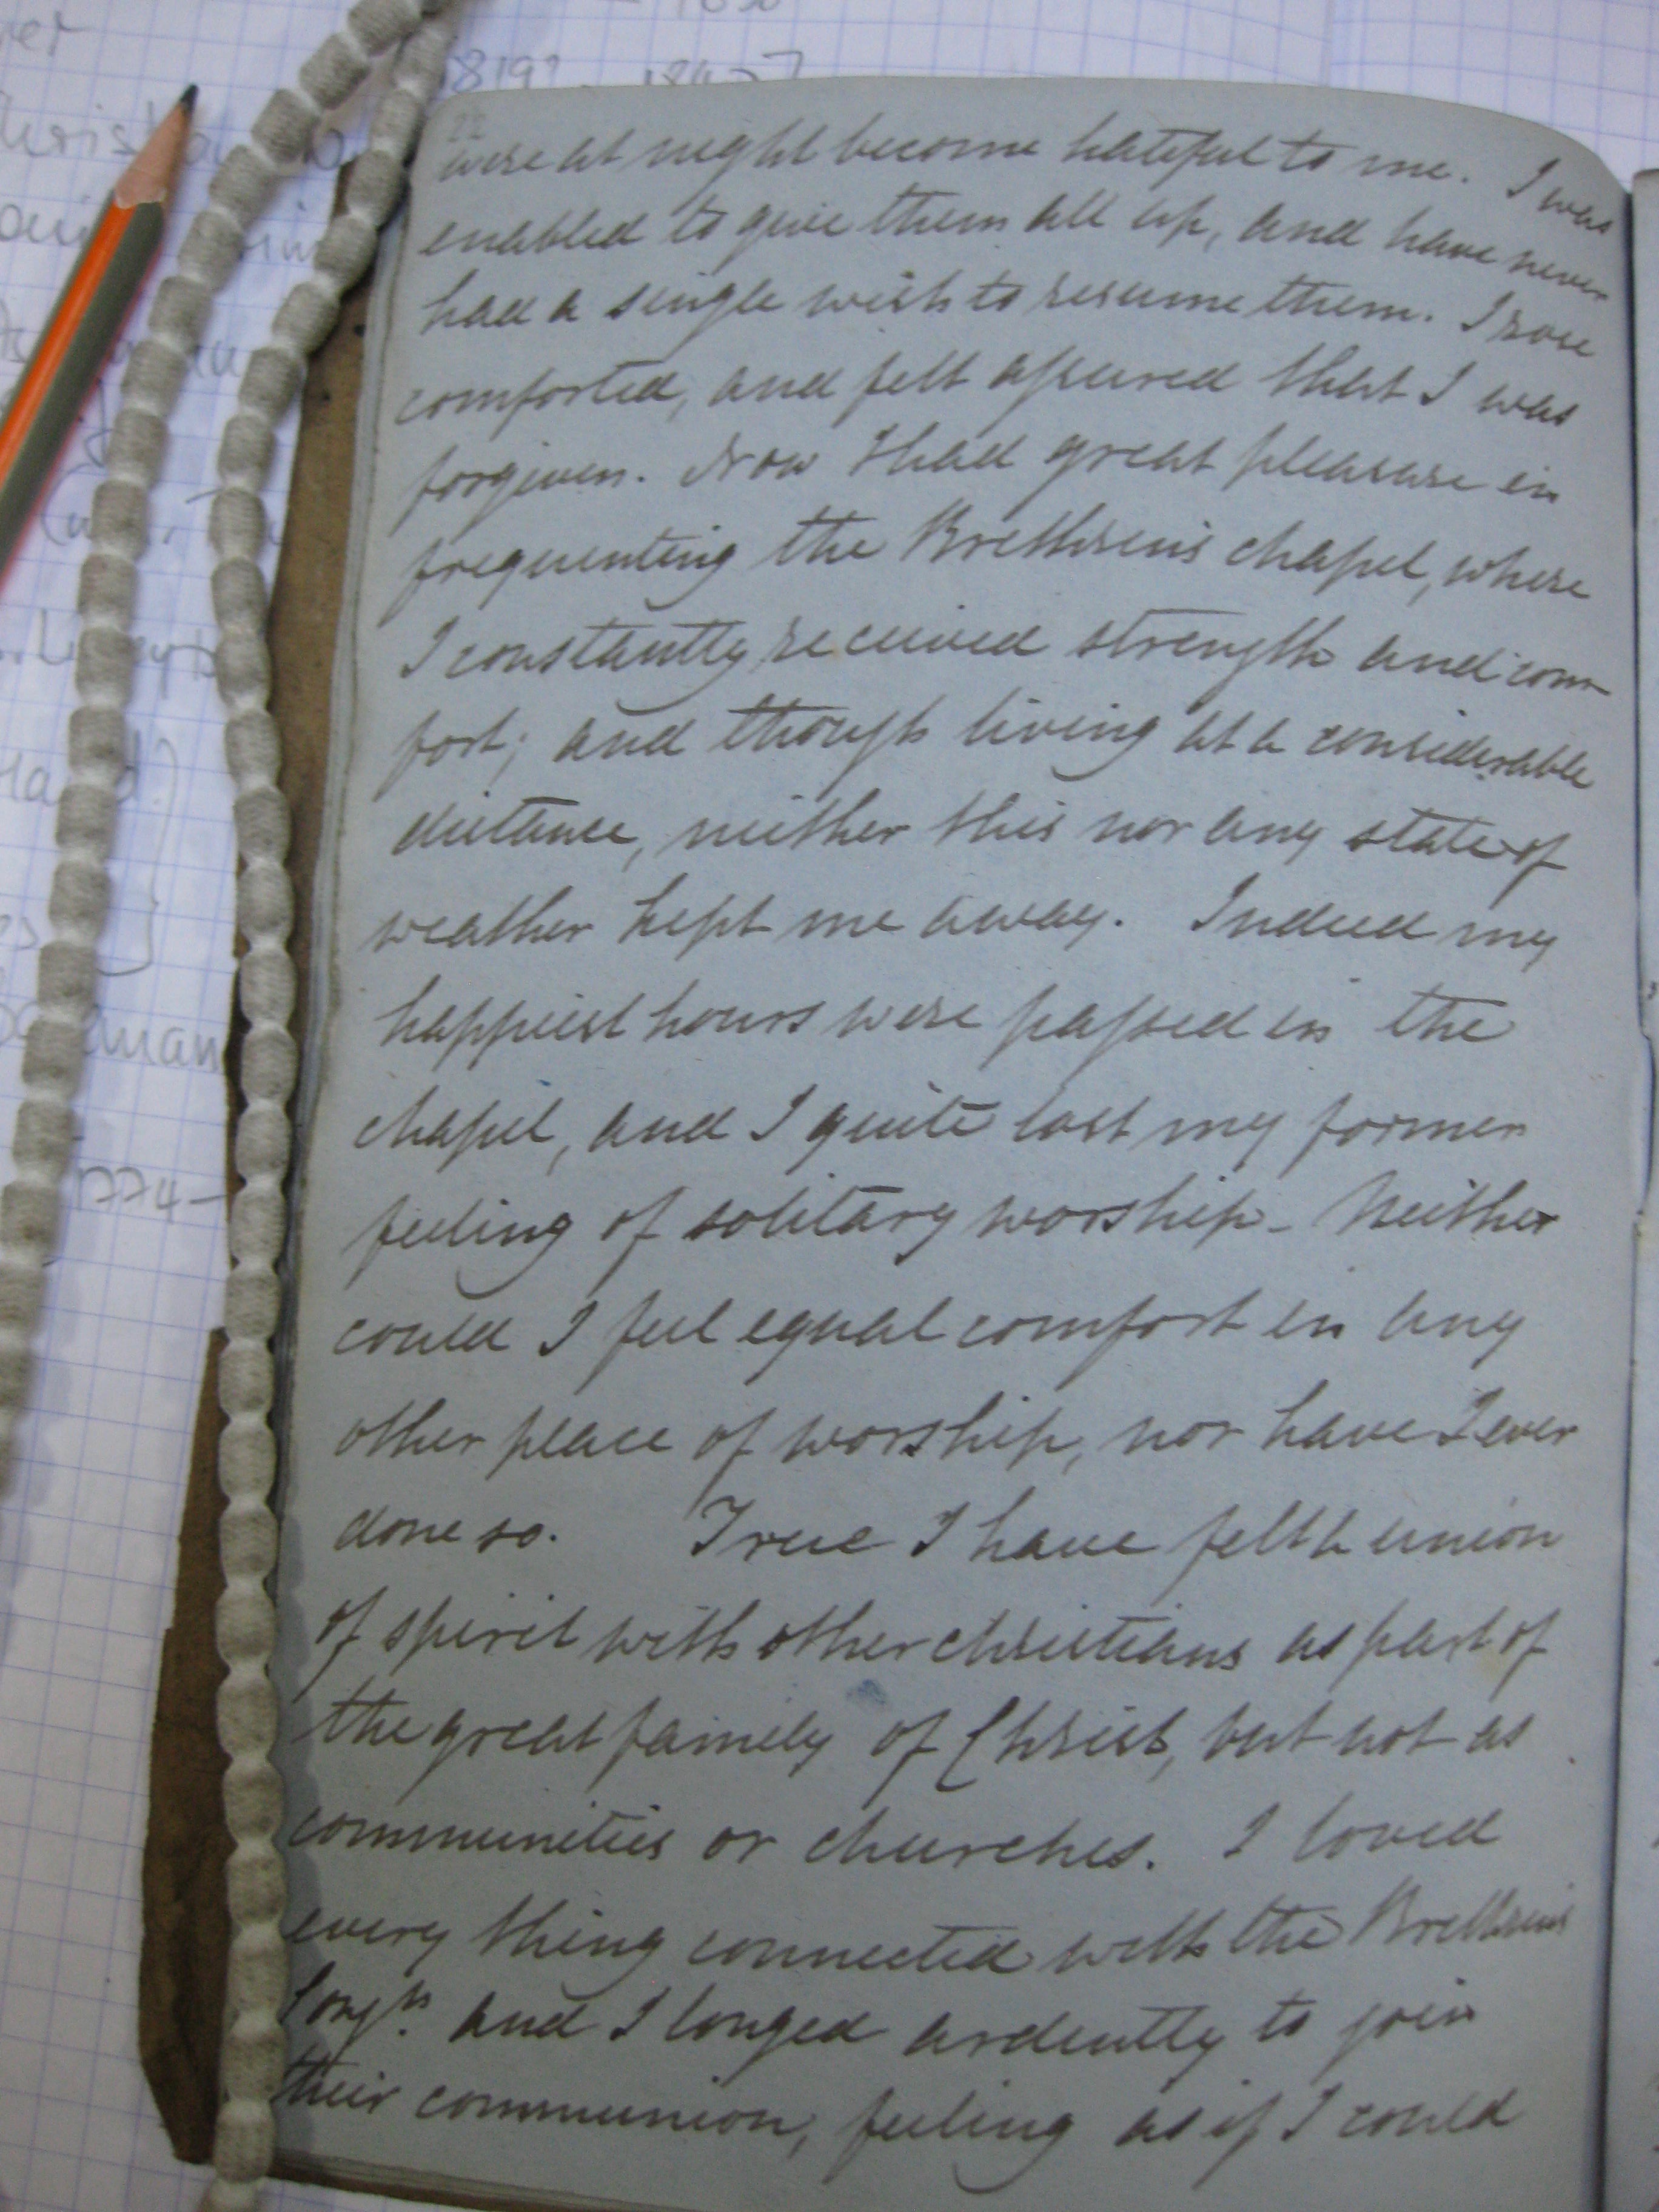 22
were at night become hateful to me. I was
enabled to give them all up, and have never
had a single wish to resume them. I rose
comforted, and felt assured that I was
forgiven. Now I had great pleasure in
frequenting the Brethren's chapel, where
I constantly received strength and com-
fort; and though living at a considerable
distance, neither this nor any state of
weather kept me away. Indeed my
happiest hours were passed in the
chapel, and I quite lost my former
feeling of solitary worship. Neither
could I feel equal comfort in any
other place of worship, nor have I ever
done so. True I have felt a union
of spirit with other christians as part of
the great family of Christ, but not as
communities or churches. I loved
every thing connected with the Brethren's
Congn. and I longed ardently to join
their communion, feeling as if I could
1774-